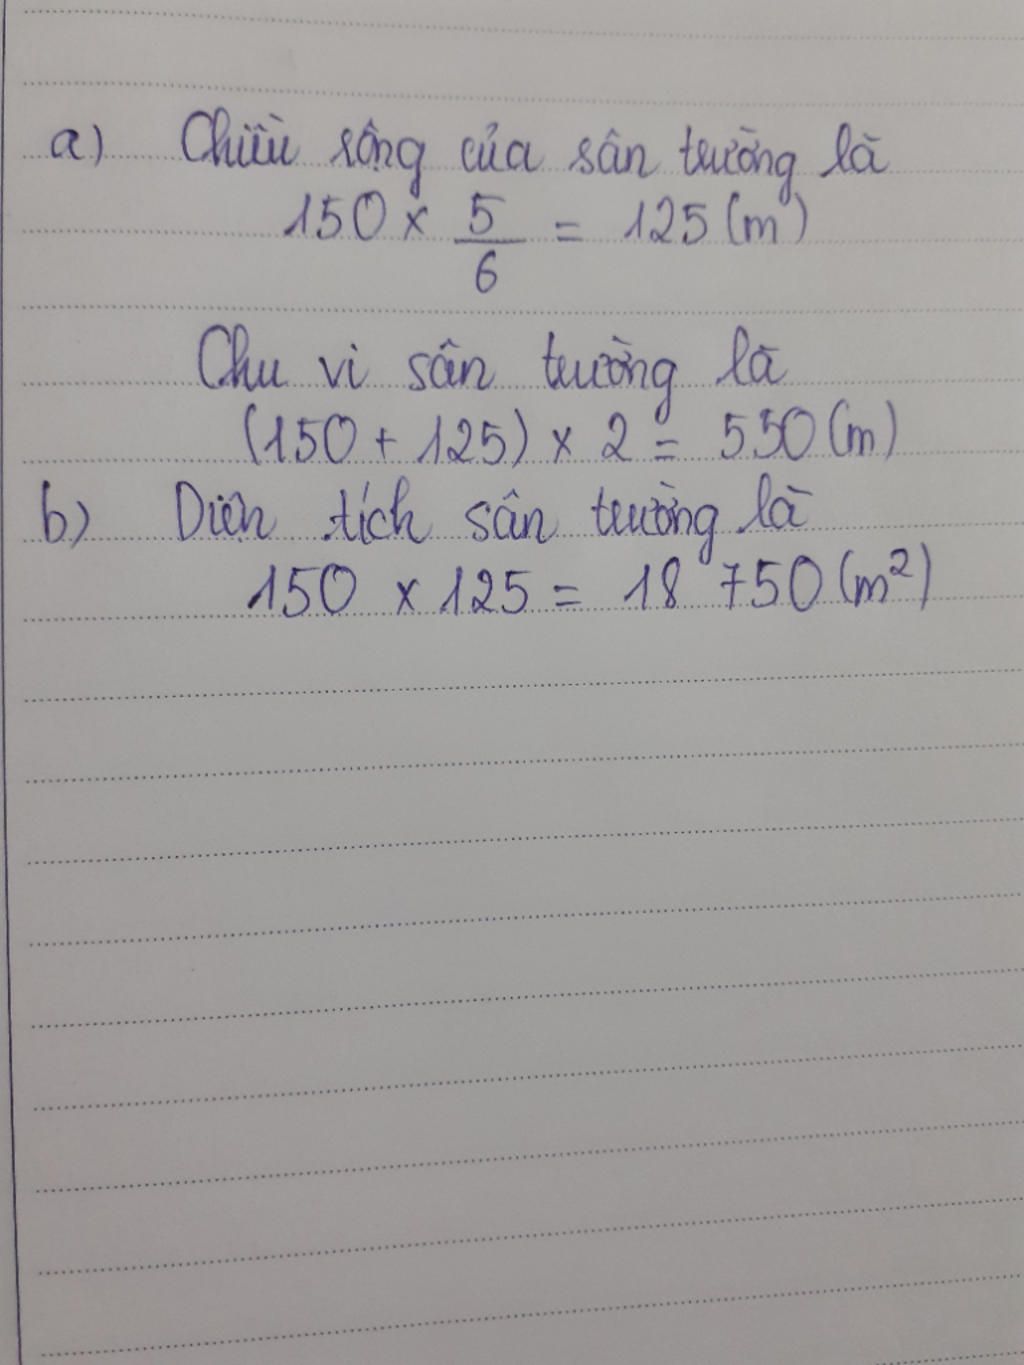 a) Chiều rộng của sân trường là
150 × 5/6 = 125 (m)
Chu vi sân trường là
(150 + 125) × 2 = 550 (m)
b) Diện tích sân trường là
150 × 125 = 18 750 (m²)